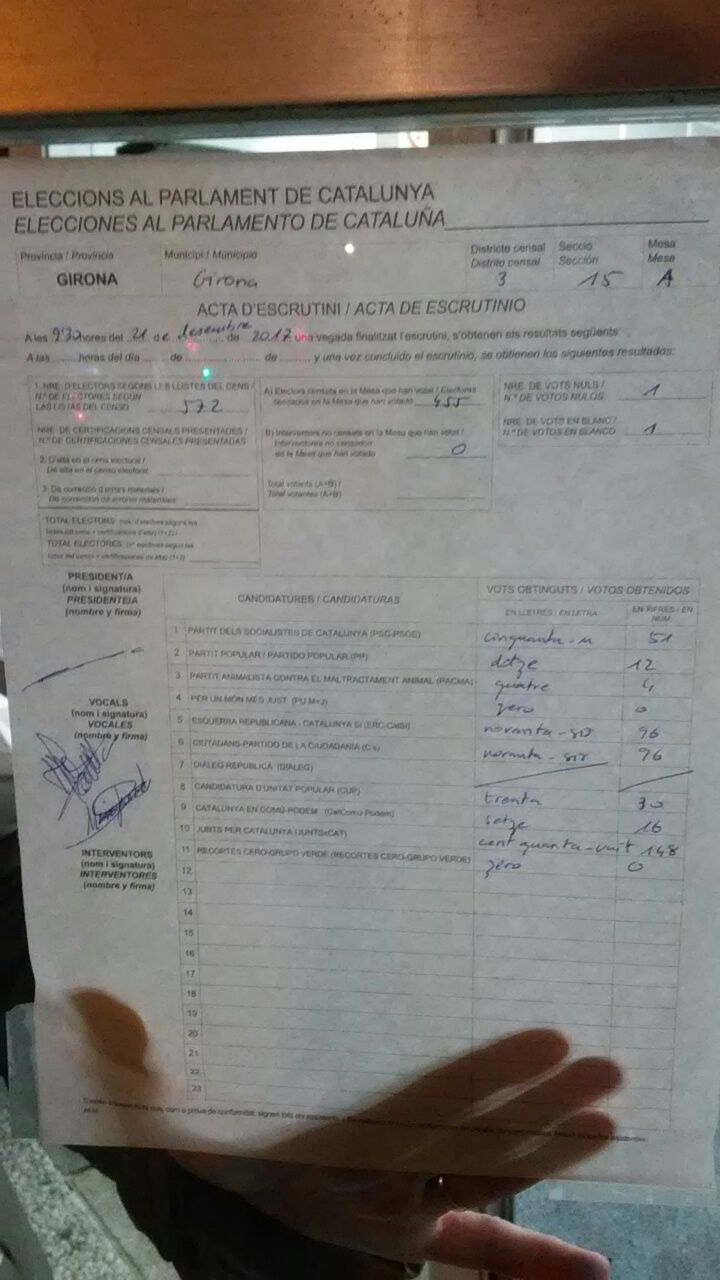 ELECCIONS AL PARLAMENT DE CATALUNYA
ELECCIONES AL PARLAMENTO DE CATALUÑA
Provincia / Provincia
GIRONA
Municipi / Municipio
Girona
Districte censal
Distrito censal
3
Secció
Sección
15
Mesa
Mesa
A
ACTA D'ESCRUTINI / ACTA DE ESCRUTINIO
A les 9'30 hores del 21 de desembre de 2017 una vegada finalitzat l'escrutini, s'obtenen els resultats següents:
A las ........ horas del día ...... de .................. de ........ y una vez concluido el escrutinio, se obtienen los siguientes resultados:
1. NRE. D'ELECTORS SEGONS LES LLISTES DEL CENS /
N.º DE ELECTORES SEGÚN
LAS LISTAS DEL CENSO 572
NRE. DE CERTIFICACIONS CENSALS PRESENTADES /
N.º DE CERTIFICACIONES CENSALES PRESENTADAS
2. D'alta en el cens electoral /
De alta en el censo electoral
3. De correcció d'errors materials /
De corrección de errores materiales
TOTAL ELECTORS
TOTAL ELECTORES
A) Electors censats en la Mesa que han votat / Electores
censados en la Mesa que han votado 455
B) Interventors no censats en la Mesa que han votat /
Interventores no censados
en la Mesa que han votado 0
Total votants (A+B) /
Total votantes (A+B)
NRE. DE VOTS NULS /
N.º DE VOTOS NULOS 1
NRE. DE VOTS EN BLANC /
N.º DE VOTOS EN BLANCO 1
PRESIDENT/A
(nom i signatura)
PRESIDENTE/A
(nombre y firma)
VOCALS
(nom i signatura)
VOCALES
(nombre y firma)
INTERVENTORS
(nom i signatura)
INTERVENTORES
(nombre y firma)
CANDIDATURES / CANDIDATURAS
VOTS OBTINGUTS / VOTOS OBTENIDOS
EN LLETRES / EN LETRA
EN XIFRES / EN NÚM.
1 PARTIT DELS SOCIALISTES DE CATALUNYA (PSC-PSOE) cinquanta-u 51
2 PARTIT POPULAR / PARTIDO POPULAR (PP) dotze 12
3 PARTIT ANIMALISTA CONTRA EL MALTRACTAMENT ANIMAL (PACMA) quatre 4
4 PER UN MÓN MÉS JUST (PU M+J) zero 0
5 ESQUERRA REPUBLICANA - CATALUNYA SÍ (ERC-CatSí) noranta-sis 96
6 CIUTADANS-PARTIDO DE LA CIUDADANÍA (C's) noranta-sis 96
7 DIÀLEG REPUBLICÀ (DIÀLEG)
8 CANDIDATURA D'UNITAT POPULAR (CUP) trenta 30
9 CATALUNYA EN COMÚ-PODEM (CatComú-Podem) setze 16
10 JUNTS PER CATALUNYA (JUNTSxCAT) cent quanta-vuit 148
11 RECORTES CERO-GRUPO VERDE (RECORTES CERO-GRUPO VERDE) zero 0
12
13
14
15
16
17
18
19
20
21
22
23